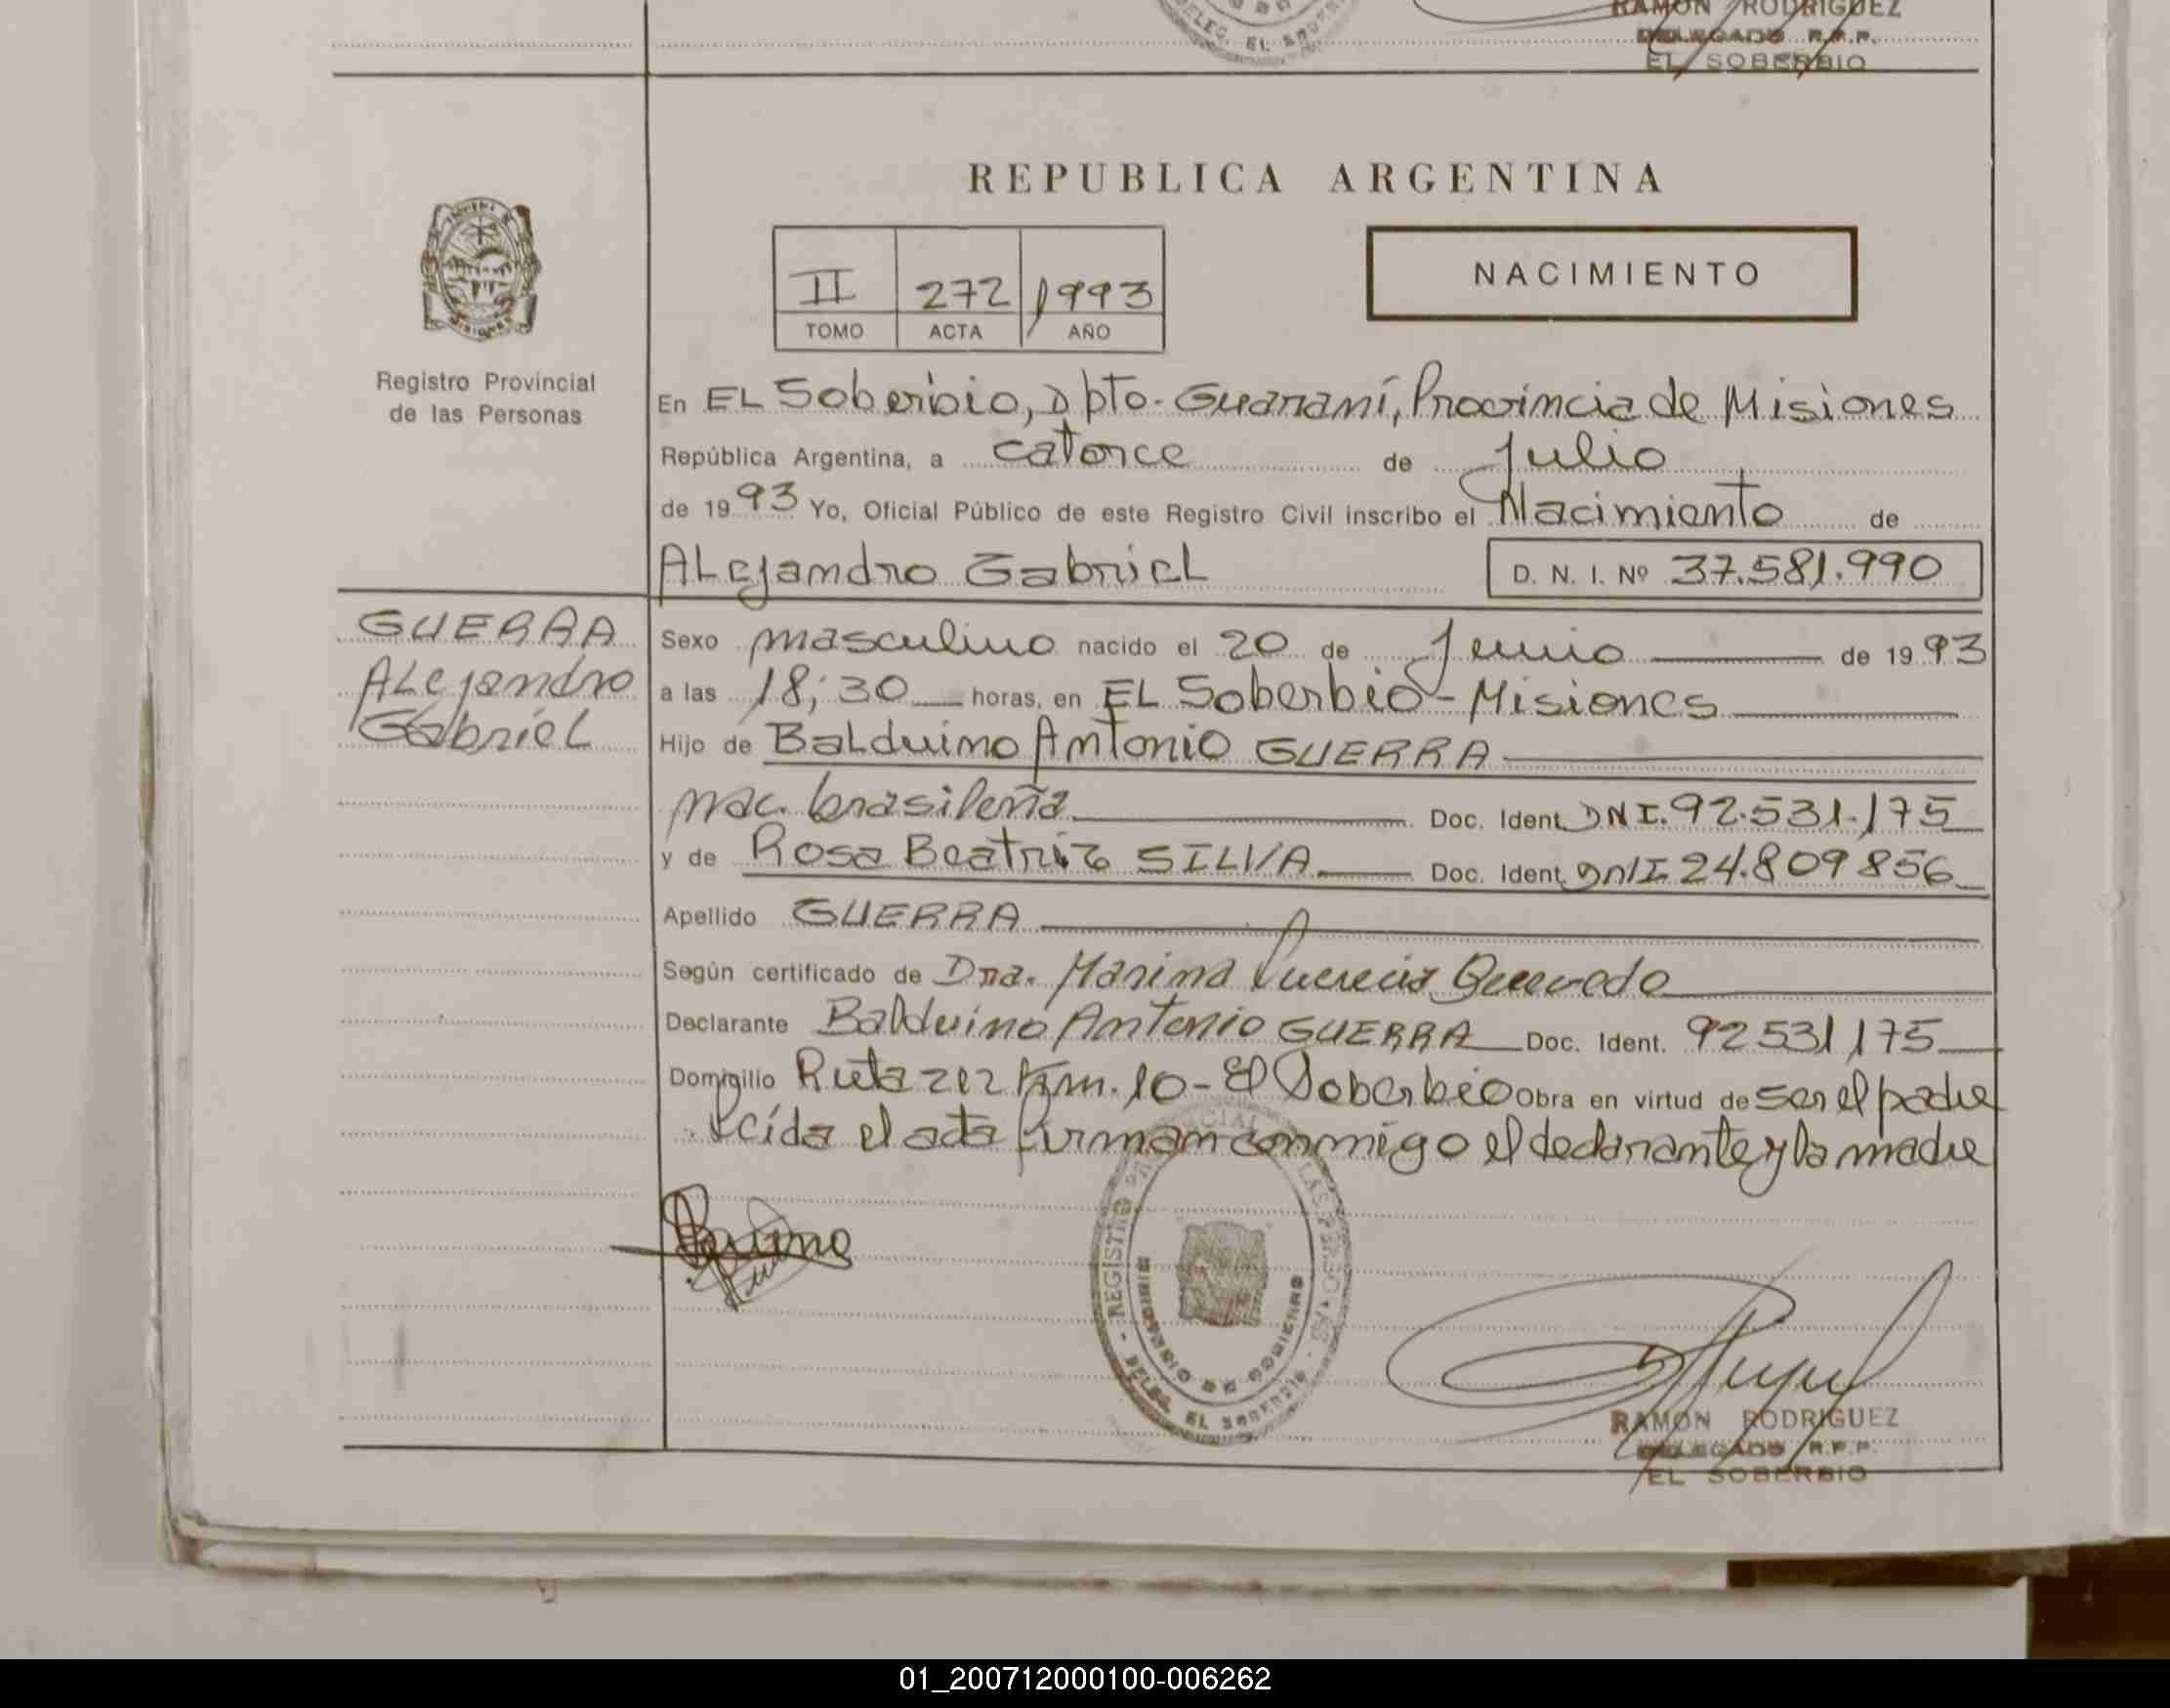 RAMON RODRIGUEZ
DELEG. EL SOBERBIO
DELEGADO R.P.P.
EL SOBERBIO
REPUBLICA ARGENTINA
NACIMIENTO
II 272 1993
TOMO ACTA AÑO
MISIONES
Registro Provincial
de las Personas
En EL Soberbio, Dpto. Guaraní, Provincia de Misiones
República Argentina, a catorce de Julio
de 1993 Yo, Oficial Público de este Registro Civil inscribo el Nacimiento de
ALejandro Gabriel D. N. I. Nº 37.581.990
GUERRA
ALejandro
Gabriel
Sexo masculino nacido el 20 de Junio de 1993
a las 18;30 horas, en EL Soberbio - Misiones
Hijo de Balduino Antonio GUERRA
nac. brasileña Doc. Ident. DNI. 92.531.175
y de Rosa Beatriz SILVA Doc. Ident. DNI 24.809856
Apellido GUERRA
Según certificado de Dra. Marina Quevedo
Declarante Balduino Antonio GUERRA Doc. Ident. 92531175
Domicilio Ruta 212 Km. 10 - El Soberbio Obra en virtud de ser el padre
Leída el acta firman conmigo el declarante y la madre
REGISTRO PROVINCIAL DE LAS PERSONAS - DELEG. EL SOBERBIO -
MINISTERIO DE GOBIERNO
RAMON RODRIGUEZ
DELEGADO R.P.P.
EL SOBERBIO
01_200712000100-006262